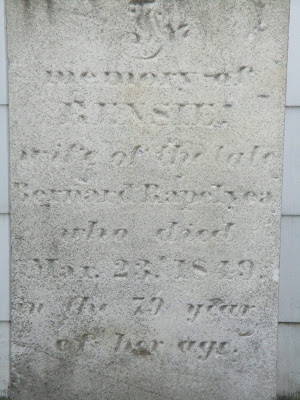 In
memory of
RENSIE.
wife of the late
Bernard Rapelyea
who died
Mar. 23. 1849.
in the 79 year
of her age.